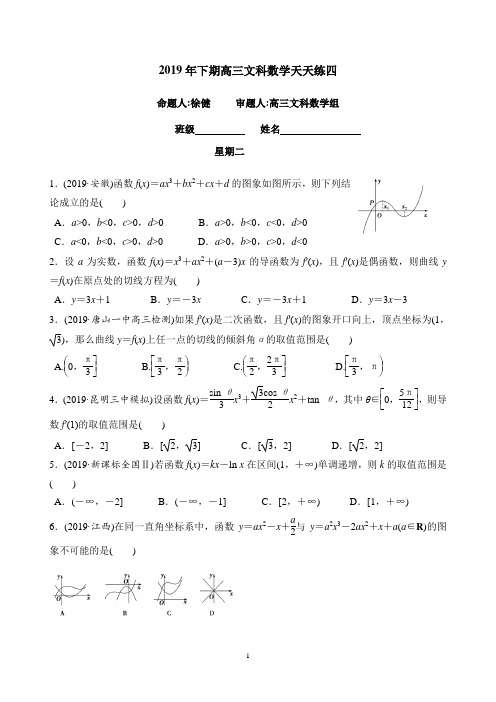 2019年下期高三文科数学天天练四
命题人:徐健 审题人:高三文科数学组
班级 姓名
星期二
1．(2019·安徽)函数f(x)＝ax³＋bx²＋cx＋d的图象如图所示，则下列结
论成立的是( )
A．a>0，b<0，c>0，d>0 B．a>0，b<0，c<0，d>0
C．a<0，b<0，c>0，d>0 D．a>0，b>0，c>0，d<0
y
P
O x₁ x₂ x
2．设a为实数，函数f(x)＝x³＋ax²＋(a－3)x的导函数为f′(x)，且f′(x)是偶函数，则曲线y
＝f(x)在原点处的切线方程为( )
A．y＝3x＋1 B．y＝－3x C．y＝－3x＋1 D．y＝3x－3
3．(2019·唐山一中高三检测)如果f′(x)是二次函数，且f′(x)的图象开口向上，顶点坐标为(1，
√3)，那么曲线y＝f(x)上任一点的切线的倾斜角α的取值范围是( )
A.(0，π/3] B.[π/3，π/2) C.(π/2，2π/3] D.[π/3，π)
4．(2019·昆明三中模拟)设函数f(x)＝sin θ/3 x³＋√3cos θ/2 x²＋tan θ，其中θ∈[0，5π/12]，则导
数f′(1)的取值范围是( )
A．[－2，2] B．[√2，√3] C．[√3，2] D．[√2，2]
5．(2019·新课标全国Ⅱ)若函数f(x)＝kx－ln x在区间(1，＋∞)单调递增，则k的取值范围是
( )
A．(－∞，－2] B．(－∞，－1] C．[2，＋∞) D．[1，＋∞)
6．(2019·江西)在同一直角坐标系中，函数y＝ax²－x＋a/2与y＝a²x³－2ax²＋x＋a(a∈R)的图
象不可能的是( )
y O x y O x y O x y O x
A B C D
1